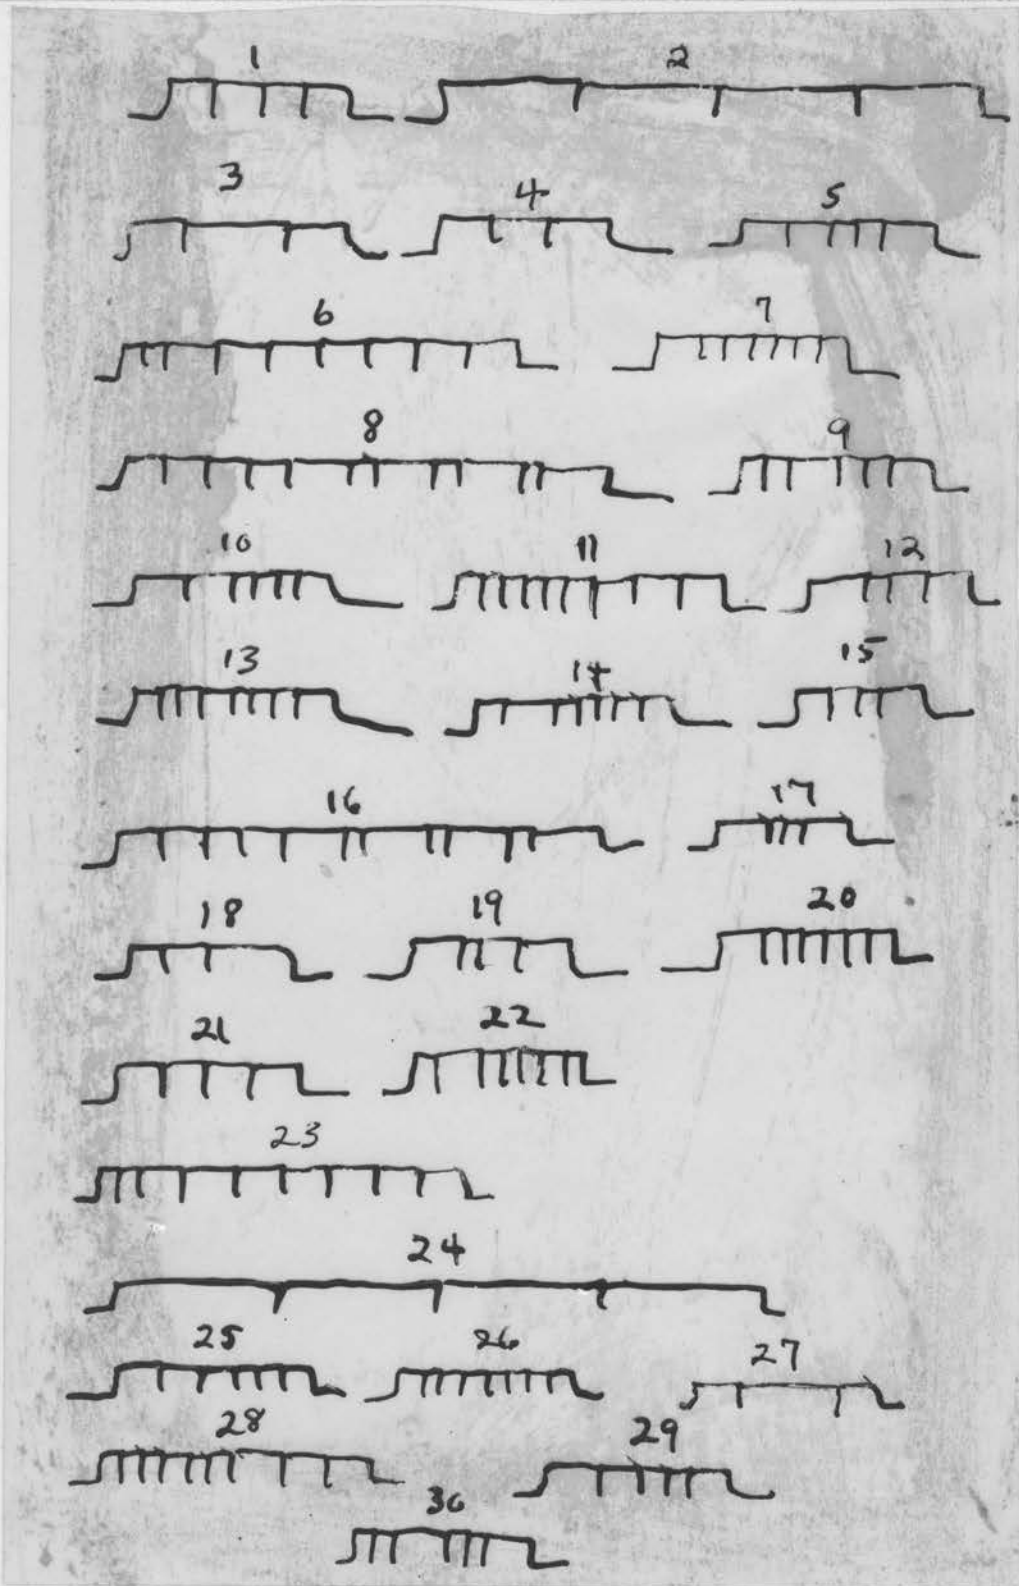 1 2
3 4 5
6 7
8 9
10 11 12
13 14 15
16 17
18 19 20
21 22
23
24
25 26 27
28 29
30